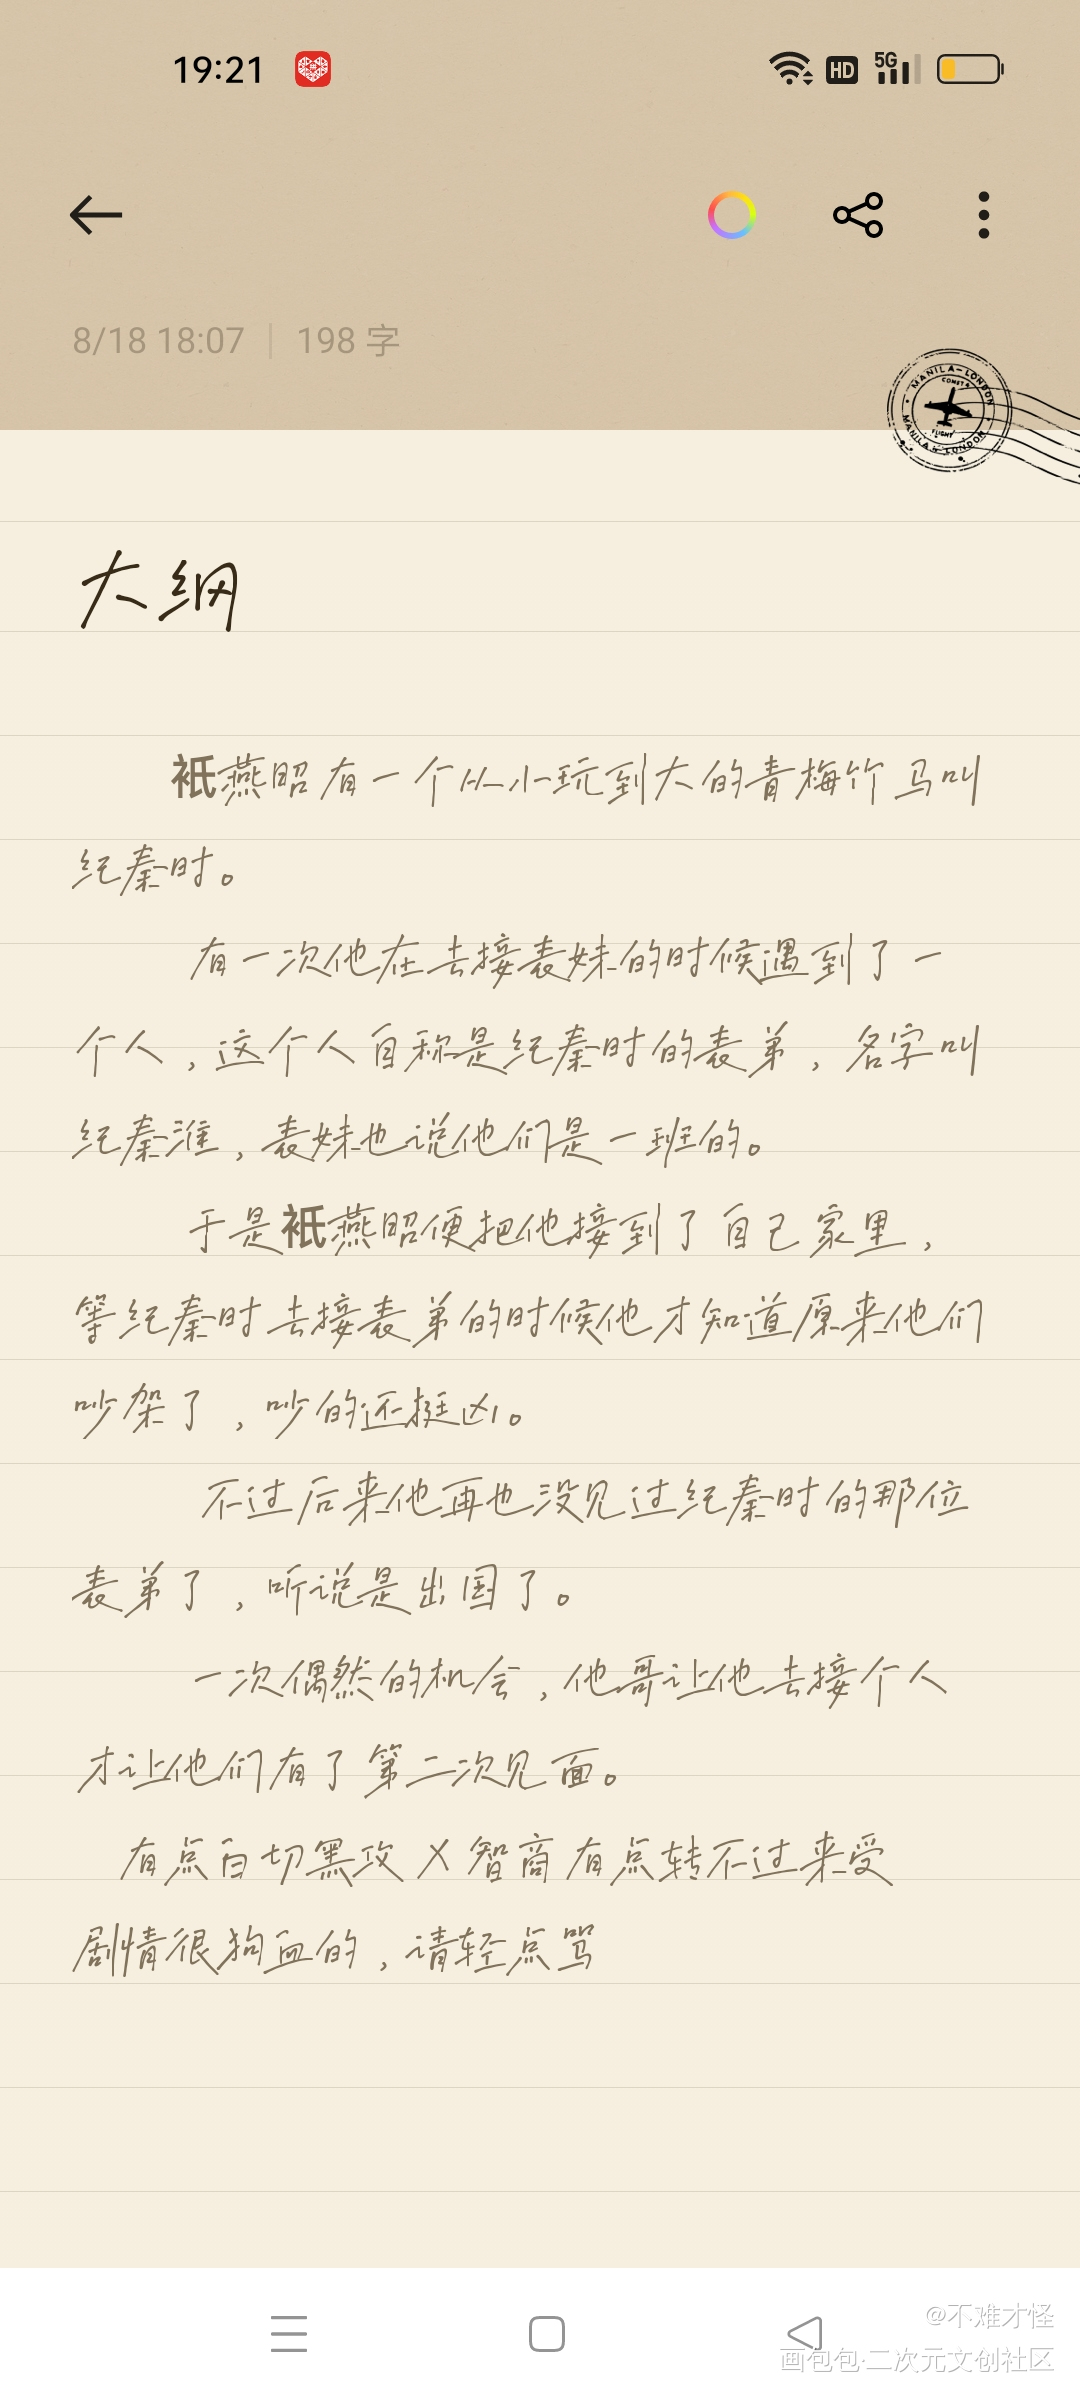 19:21
HD 5G
8/18 18:07 | 198 字
MANILA-LONDON
COMET 4
FLIGHT
MANILA & LONDON
大纲
衹燕昭有一个从小玩到大的青梅竹马叫
纪秦时。
有一次他在去接表妹的时候遇到了一
个人，这个人自称是纪秦时的表弟，名字叫
纪秦淮，表妹也说他们是一班的。
于是衹燕昭便把他接到了自己家里，
等纪秦时去接表弟的时候他才知道原来他们
吵架了，吵的还挺凶。
不过后来他再也没见过纪秦时的那位
表弟了，听说是出国了。
一次偶然的机会，他哥让他去接个人
才让他们有了第二次见面。
有点白切黑攻 X 智商有点转不过来受
剧情很狗血的，请轻点骂
@不难才怪
画包包·二次元文创社区